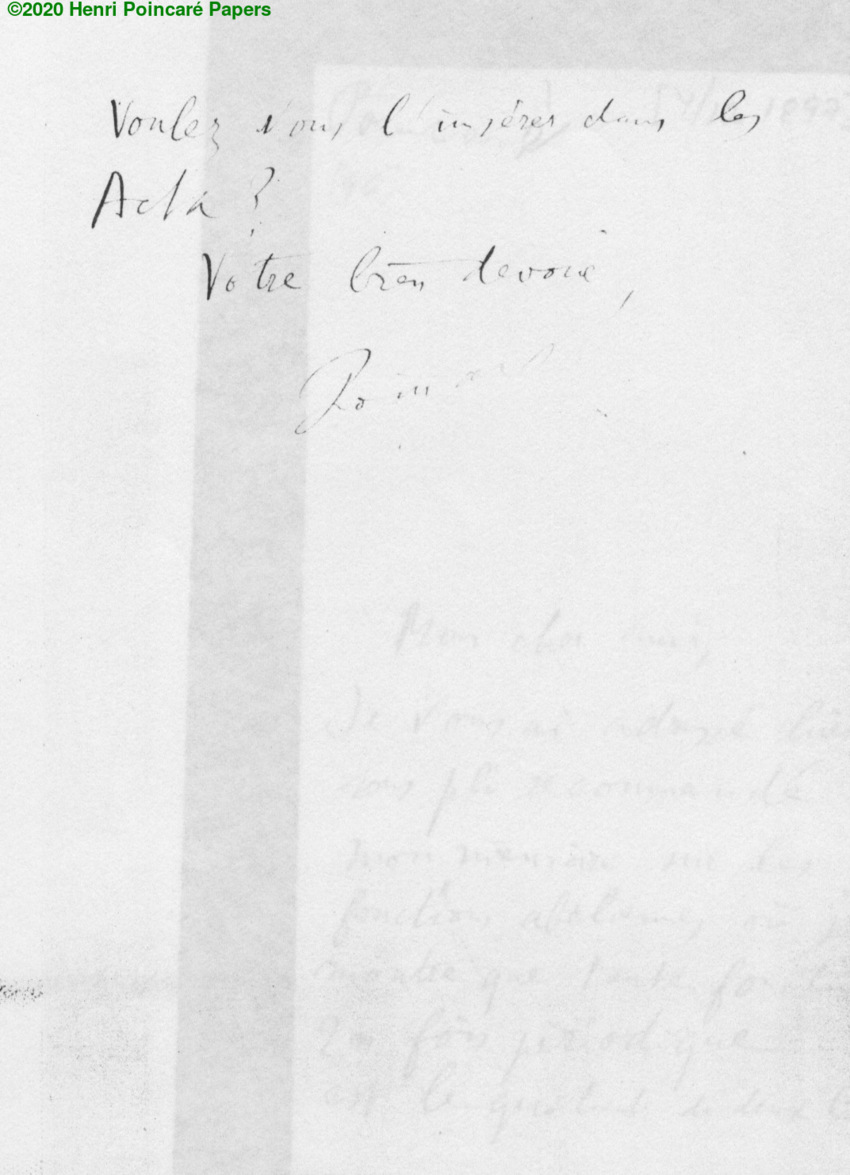 ©2020 Henri Poincaré Papers
Voulez vous l'insérer dans les
Acta ?
Votre bien devoué,
Poincaré
Mon cher ami,
Je vous ai adressé hier
sous pli recommandé
mon mémoire sur les
fonctions abeliennes où j
montre que toute fonction
2n fois périodique
est le quotient de deux